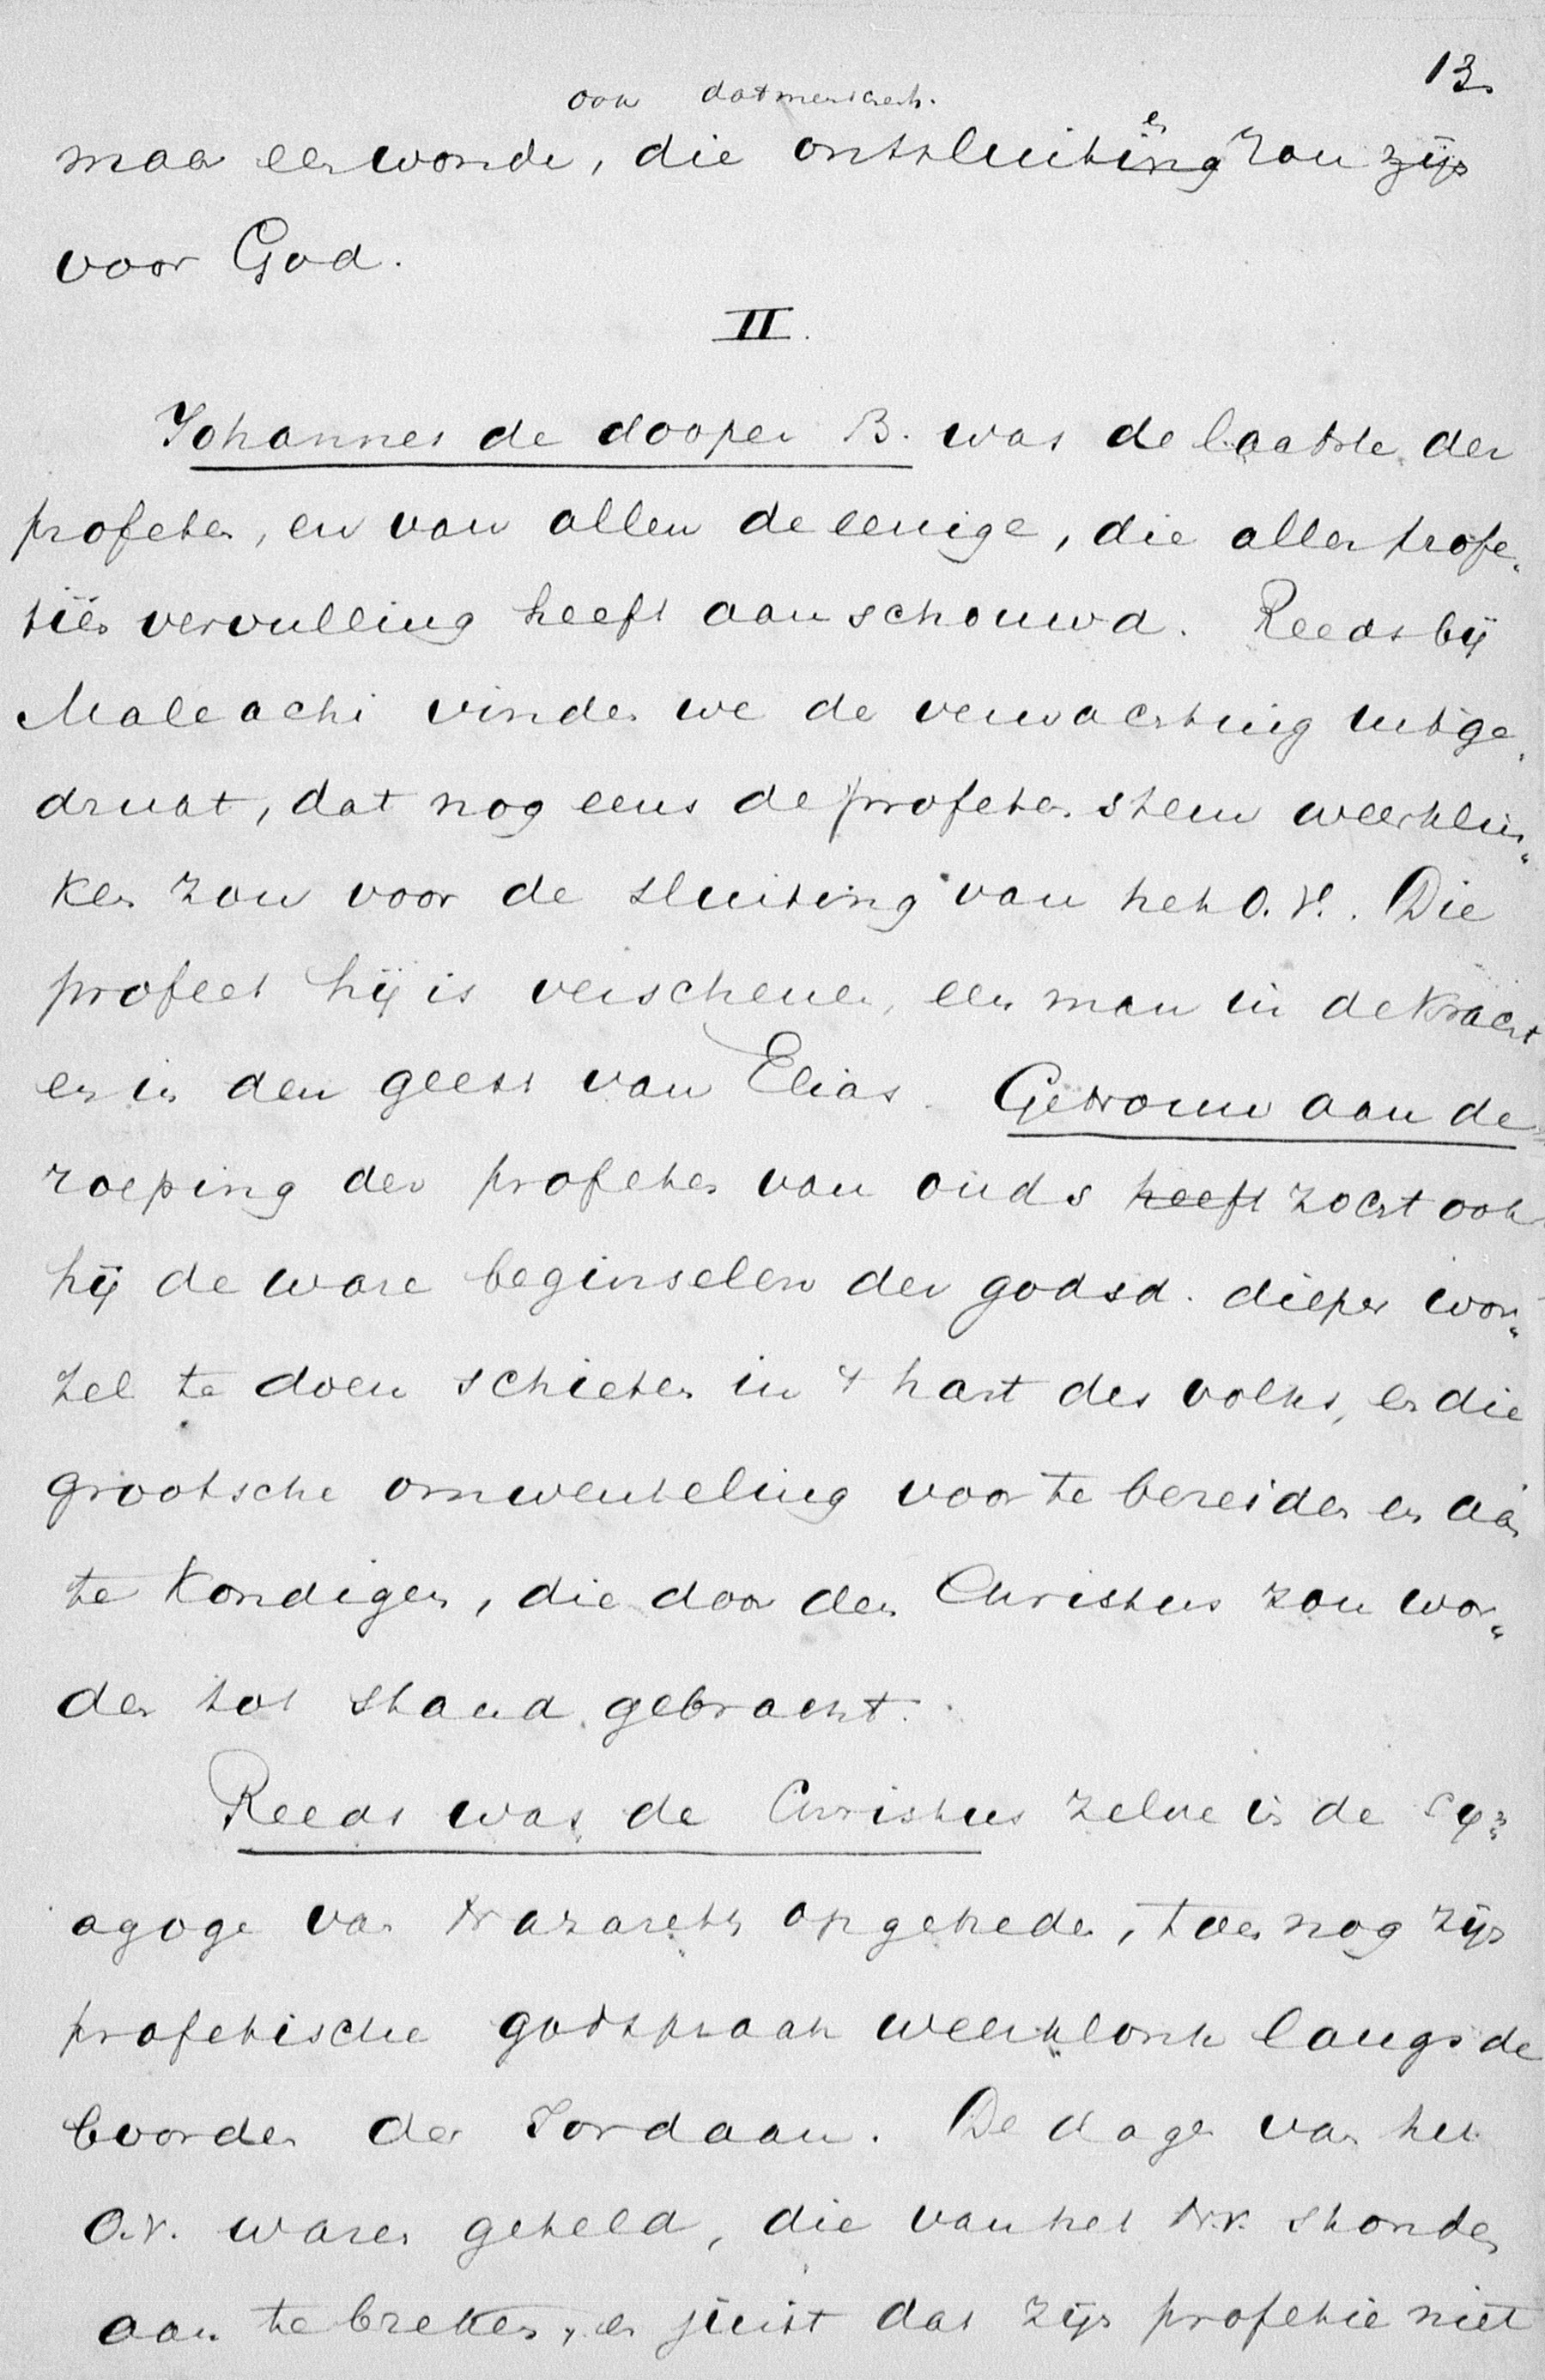 13.
ook dat menschenh.
maar een wonde, die ontsluiten zou zijn
voor God.
II.
Johannes de dooper B. was de laatste der
profeten, en van allen de eenige, die aller profe„
tiën vervulling heeft aanschouwd. Reeds bij
Maleachi vinden we de verwachting uitge„
drukt, dat nog eens de profeten stem weerklin„
ken zou voor de sluiting van het O.V. Die
profeet hij is verschenen, een man in de kracht
en in den geest van Elias. Getrouw aan de
roeping der profeten van ouds heeft zocht ook
hij de ware beginselen der godsd. dieper wor„
tel te doen schieten in 't hart des volks, en die
grootsche omwenteling voor te bereiden en aan
te kondigen, die door den Christus zou wor„
den tot stand gebracht.
Reeds was de Christus zelve in de Syn„
agoge van Nazareth opgetreden, toen nog zijn
profetische godspraak weerklonk langs de
boorden der Jordaan. De dagen van het
O.V. waren geteld, die van het N.V. stonden
aan te breken, en juist dat zijn profetie niet